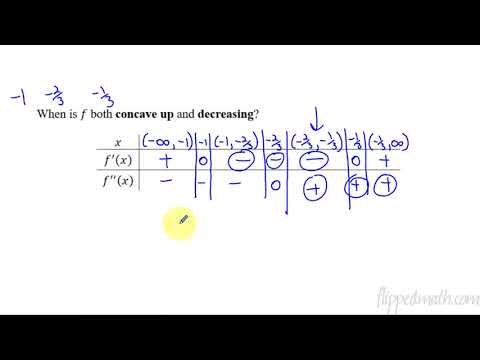 -1 -2/3 -1/3
When is f both concave up and decreasing?
x (-∞, -1) -1 (-1, -2/3) -2/3 (-2/3, -1/3) -1/3 (-1/3, ∞)
f'(x) + 0 - - - 0 +
f''(x) - - - 0 + + +
flippedmath.com